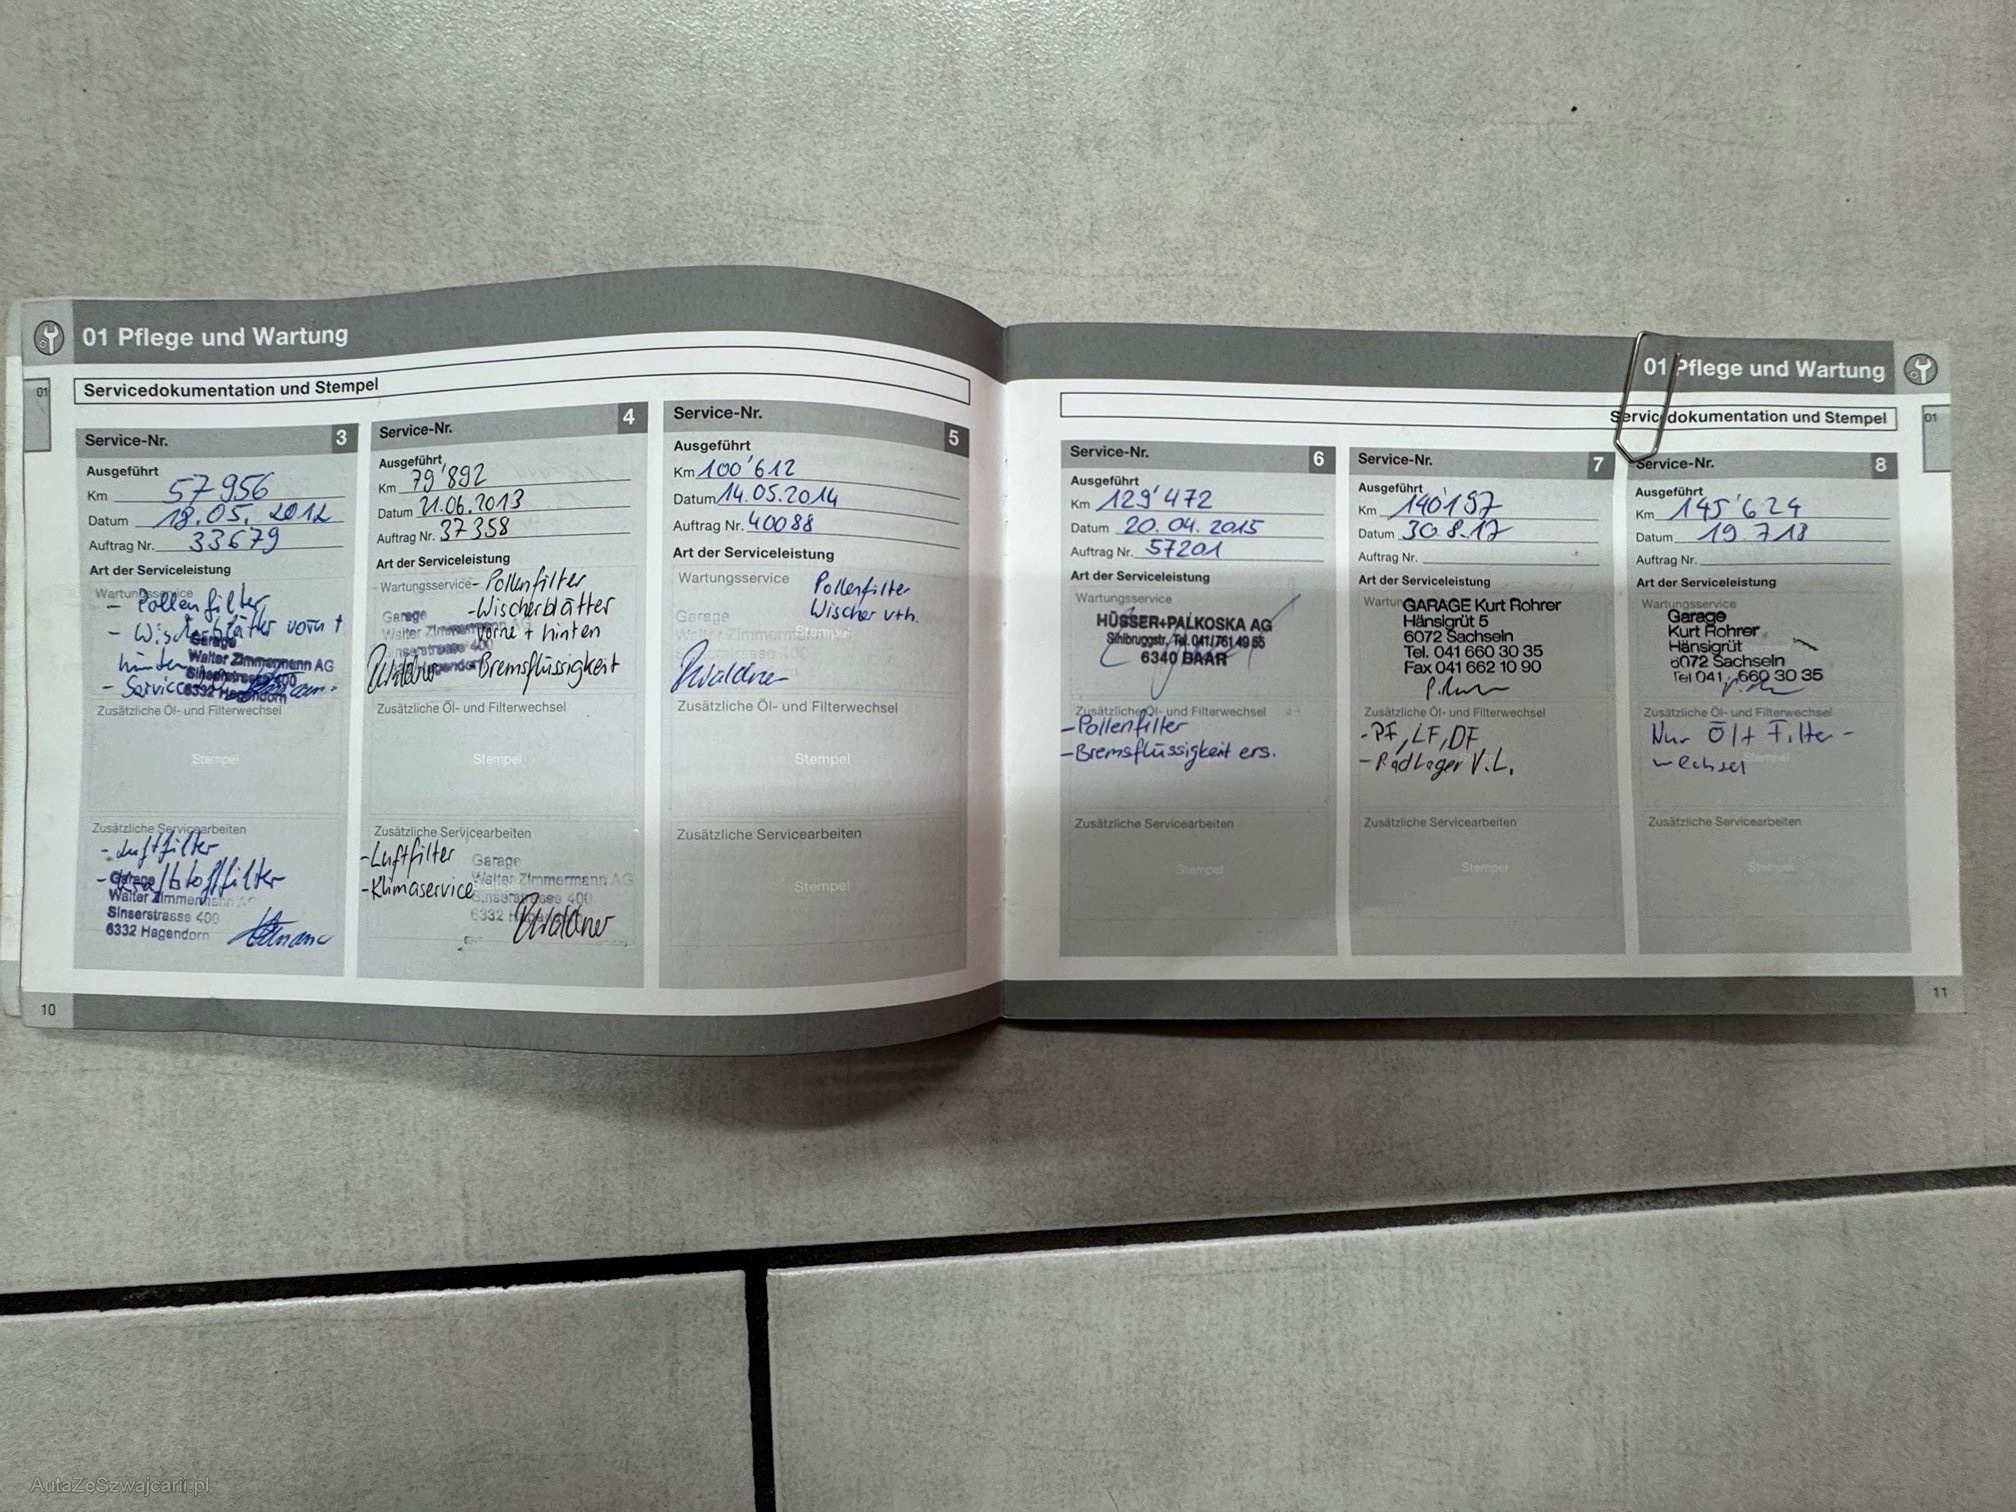 01 Pflege und Wartung
01
Servicedokumentation und Stempel
Service-Nr. 3
Ausgeführt
Km 57956
Datum 18.05.2012
Auftrag Nr. 33679
Art der Serviceleistung
Wartungsservice
- Pollenfilter
- Wischerblätter vorn +
hinten
- Service
Garage
Walter Zimmermann AG
Sinserstrasse 400
6332 Hagendorn
Zusätzliche Öl- und Filterwechsel
Stempel
Zusätzliche Servicearbeiten
- Luftfilter
- Kraftstoffilter
Garage
Walter Zimmermann AG
Sinserstrasse 400
6332 Hagendorn
Service-Nr. 4
Ausgeführt
Km 79'892
Datum 21.06.2013
Auftrag Nr. 37358
Art der Serviceleistung
Wartungsservice - Pollenfilter
- Wischerblätter
vorne + hinten
- Bremsflüssigkeit
Garage
Walter Zimmermann AG
Sinserstrasse 400
Hagendorn
Zusätzliche Öl- und Filterwechsel
Stempel
Zusätzliche Servicearbeiten
- Luftfilter
- Klimaservice
Garage
Walter Zimmermann AG
Sinserstrasse 400
6332
Service-Nr. 5
Ausgeführt
Km 100'612
Datum 14.05.2014
Auftrag Nr. 40088
Art der Serviceleistung
Wartungsservice Pollenfilter
Wischer vth.
Garage
Walter Zimmermann
Stempel
Zusätzliche Öl- und Filterwechsel
Stempel
Zusätzliche Servicearbeiten
Stempel
10
01 Pflege und Wartung
01
Servicedokumentation und Stempel
Service-Nr. 6
Ausgeführt
Km 129'472
Datum 20.04.2015
Auftrag Nr. 57201
Art der Serviceleistung
Wartungsservice
HÜSSER+PALKOSKA AG
Sihlbruggstr. Tel. 041/761 49 55
6340 BAAR
Zusätzliche Öl- und Filterwechsel
- Pollenfilter
- Bremsflüssigkeit ers.
Zusätzliche Servicearbeiten
Stempel
Service-Nr. 7
Ausgeführt
Km 140'197
Datum 30.8.17
Auftrag Nr.
Art der Serviceleistung
GARAGE Kurt Rohrer
Hänsigrüt 5
6072 Sachseln
Tel. 041 660 30 35
Fax 041 662 10 90
Zusätzliche Öl- und Filterwechsel
- PF, LF, DF
- Radlager V.L.
Zusätzliche Servicearbeiten
Stempel
Service-Nr. 8
Ausgeführt
Km 145'624
Datum 19.7.18
Auftrag Nr.
Art der Serviceleistung
Wartungsservice
Garage
Kurt Rohrer
Hänsigrüt
6072 Sachseln
Tel 041 660 30 35
Zusätzliche Öl- und Filterwechsel
Nur Öl + Filter-
wechsel
Zusätzliche Servicearbeiten
Stempel
11
AutaZeSzwajcarii.pl